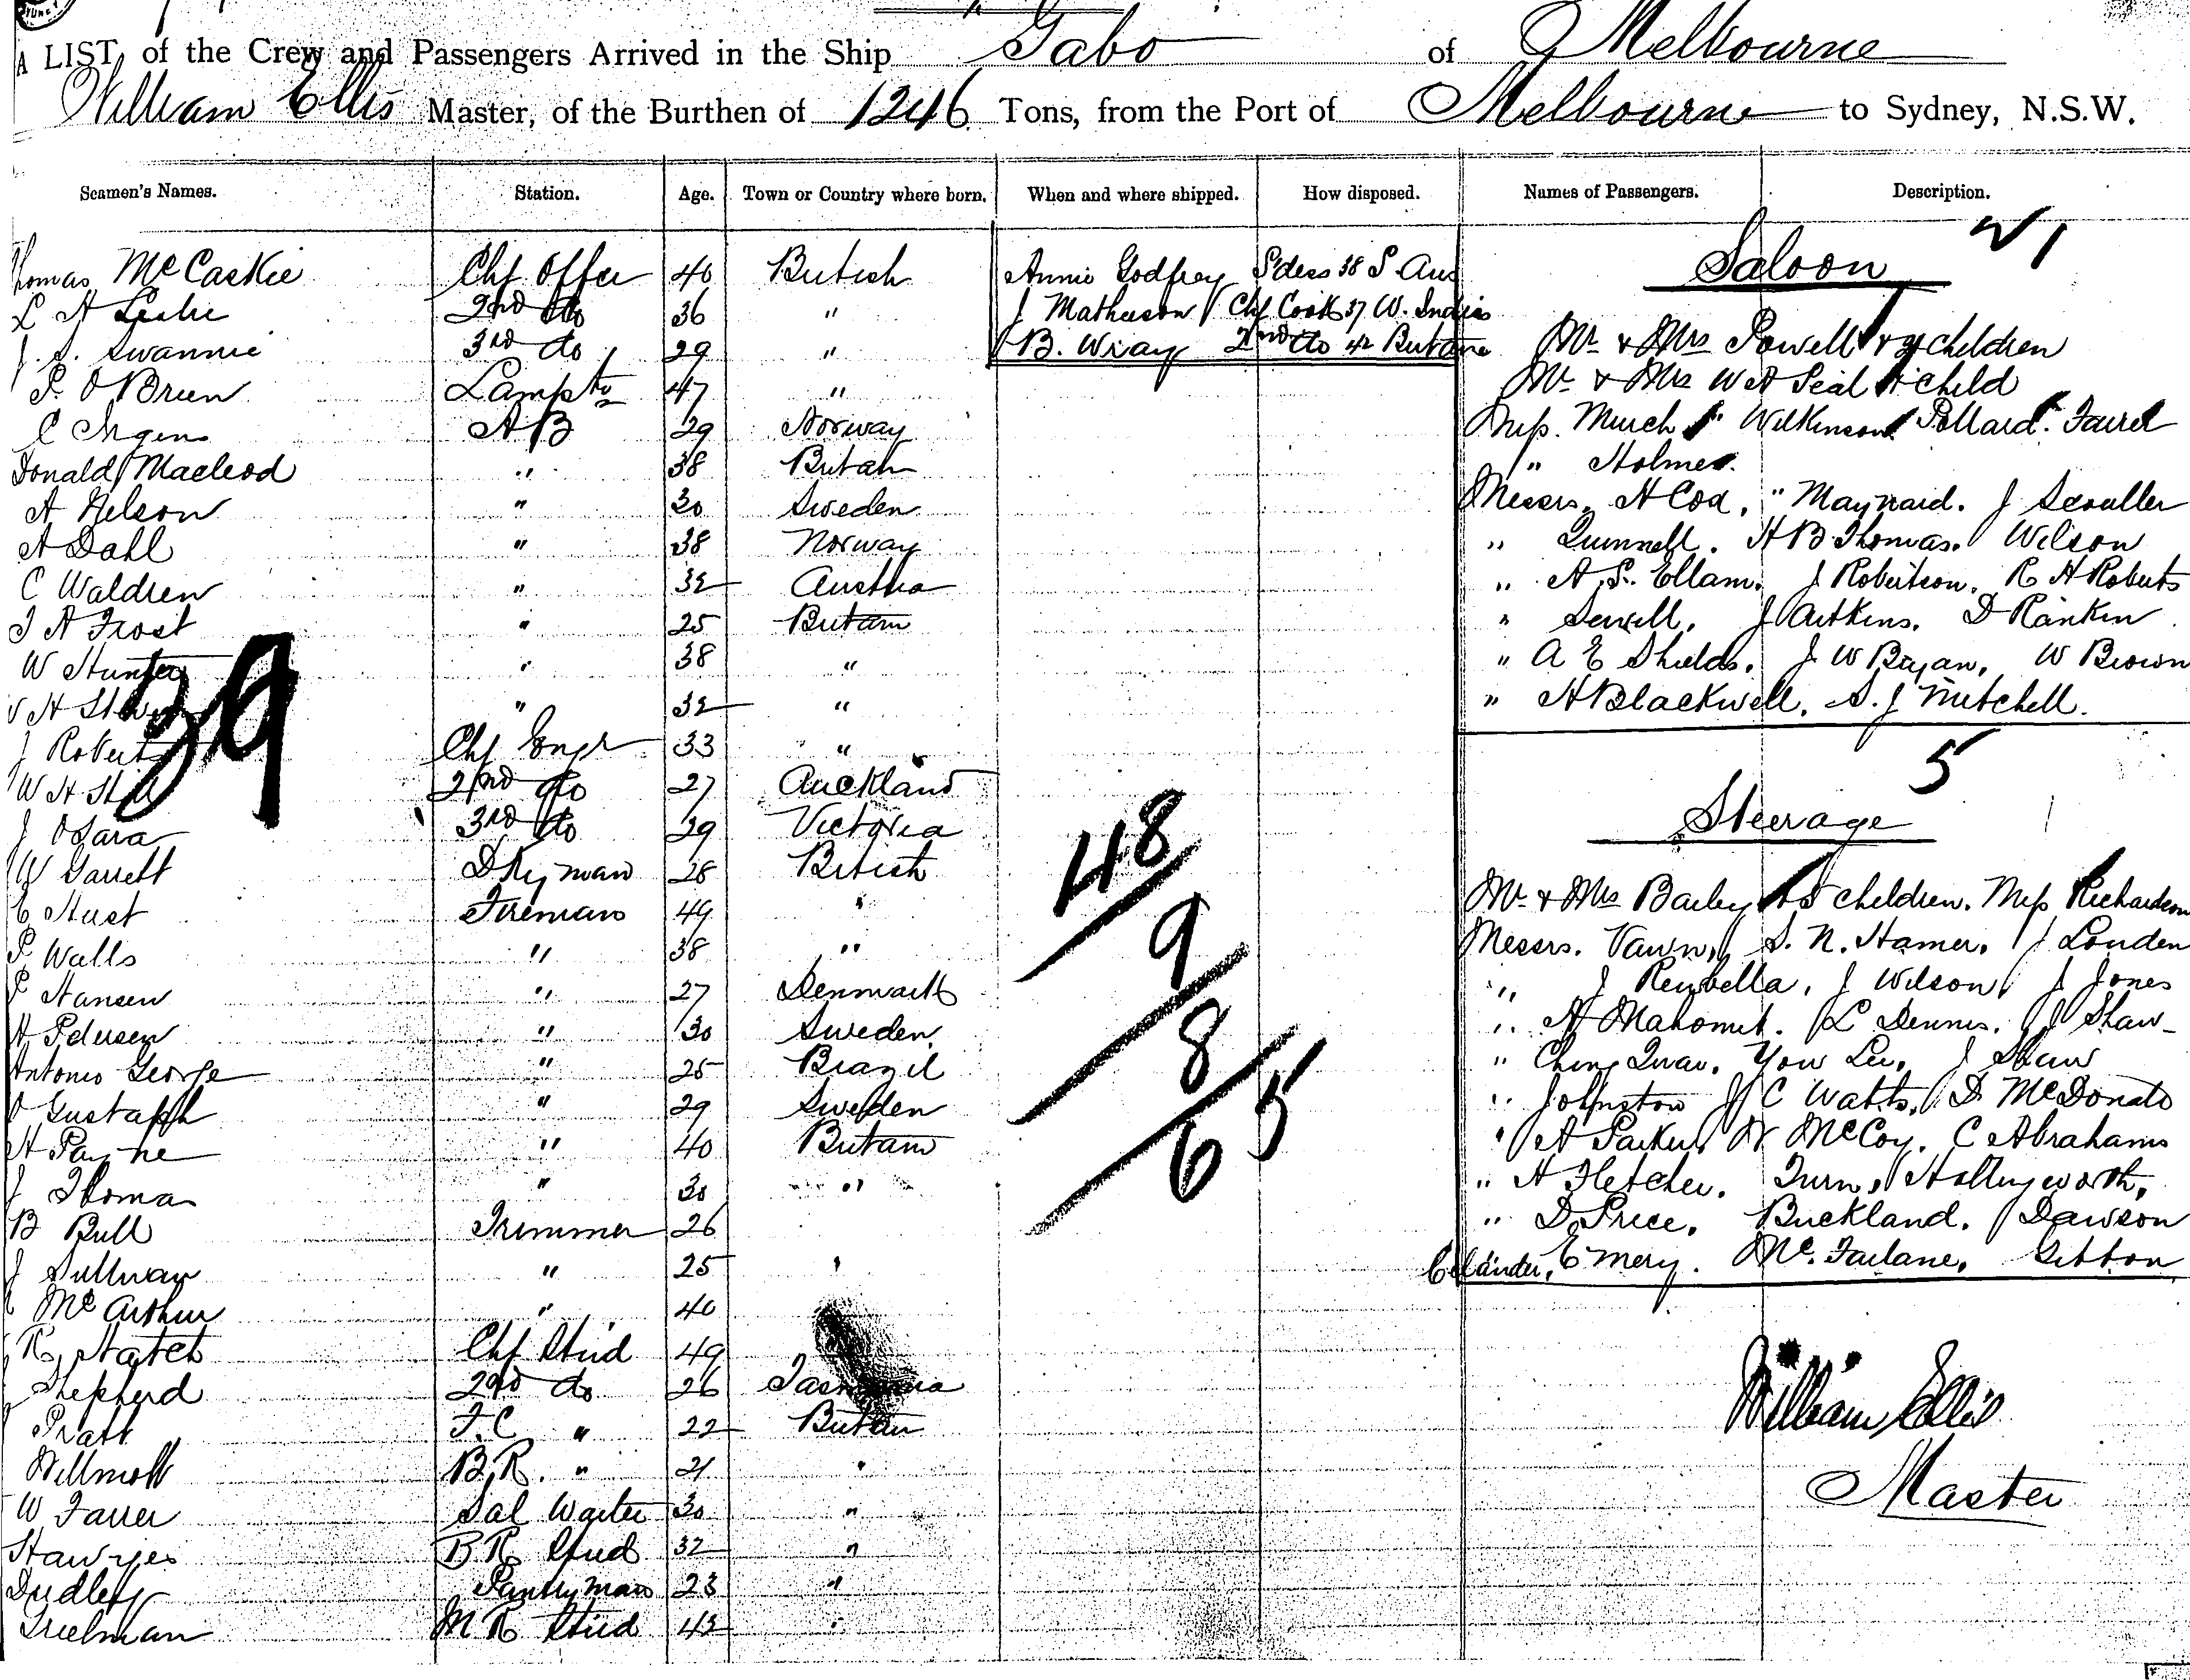 SYDNEY
A LIST of the Crew and Passengers Arrived in the Ship Gabo of Melbourne
William Ellis Master, of the Burthen of 1246 Tons, from the Port of Melbourne to Sydney, N.S.W.
Seamen's Names. Station. Age. Town or Country where born. When and where shipped. How disposed. Names of Passengers. Description.
Thomas McCaskie Chf Offer 40 British
L A Leslie 2nd do 36 "
J. S. Swannie 3rd do 29 "
P. O'Brien Lampts 47 "
C 29 Norway
A B
Donald Macleod " 38 Britain
A Nelson " 30 Sweden
A Dahl " 38 Norway
C Waldren " 32 Austria
J A Frost " 25 Britain
W Hunter " 38 "
H " 32 "
39
J Roberts Chf Engr 33 "
W H 2nd do 27 Auckland
J OGara 3rd do 29 Victoria
W Garrett Dkyman 28 British
C Hust Fireman 49 "
P Walls " 38 "
P Hansen " 27 Denmark
A Pedersen " 30 Sweden
Antonio George " 25 Brazil
Gustaph " 29 Sweden
H Payne " 40 Britain
J Thomas " 30 "
B Bull Trimmer 26
J Sullivan " 25 "
McArthur " 40
R Hatch Chf Stud 49
Shepherd 2nd do 26 Tasmania
Pratt F.C " 22 Britain
Willmott B.R. " 21 "
W Farrer Sal Waiter 30 "
Hawyes B R Stud 32 "
Dudley Pantryman 23 "
Truelman M R Stud 43 "
Annie Godfrey S'dess 38 S. Aus
J Matheson Chf Cook 37 W. Indies
B. Wray 2nd do 42 Britain
48
9
8
65
W 1
Saloon
Mr & Mrs Powell & children
Mr & Mrs W A Seal & child
Miss. Murch " Wilkinson Pollard. Farrel
" Holmes.
Messrs. H Cox, " Maynard. J Scouller
" Quinnell. H B Thomas. Wilson
" A. S. Ellam. J Robertson. R H Roberts
" Sewell. J Aitkins. D Rankin
" A E Shields. J W Bryan, W Brown
" H Blackwell. S. J Mitchell.
5
Steerage
Mr & Mrs Bailey & 5 children. Miss Richardson
Messrs. Vawn, S. N. Hamer. J Louden
" J Reubella, J Wilson J Jones
" A Mahomet. L Dennis. J Shaw
" Ching Quay. You Lee. J Shaw
" Johnston J C Watts, D. McDonald
" A Parker N McCoy. C Abrahams
" H Fletcher. Turn, Hollingworth,
" D. Price. Buckland. Dawson
Emery. McFarlane. Gibbon
William Ellis
Master